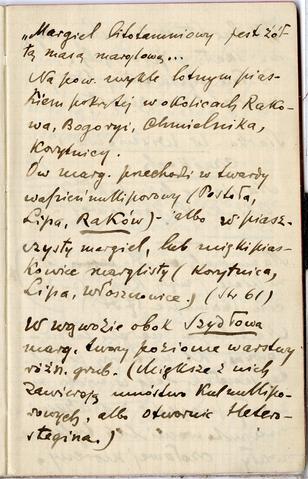 „Margiel litotamniowy jest żół-
tą masą marglową...
Na pow. zwykle lotnym pias-
kiem pokrytej w okolicach Rako-
wa, Bogoryi, Chmielnika,
Korytnicy.
Ów marg. przechodzi w twardy
wapień nulliporowy (
Lipa, Raków) - albo w piasz-
czysty margiel, lub miękki pias-
kowiec marglisty (Korytnica,
Lipa, Włoszczowice,) (Str 61)
W wąwozie obok Szydłowa
marg. tworzy poziome warstwy
różn. grub. (Miększe z nich
zawierają mnóstwo kul nullipo-
rowych, albo otwornic Hetero-
stegina.)